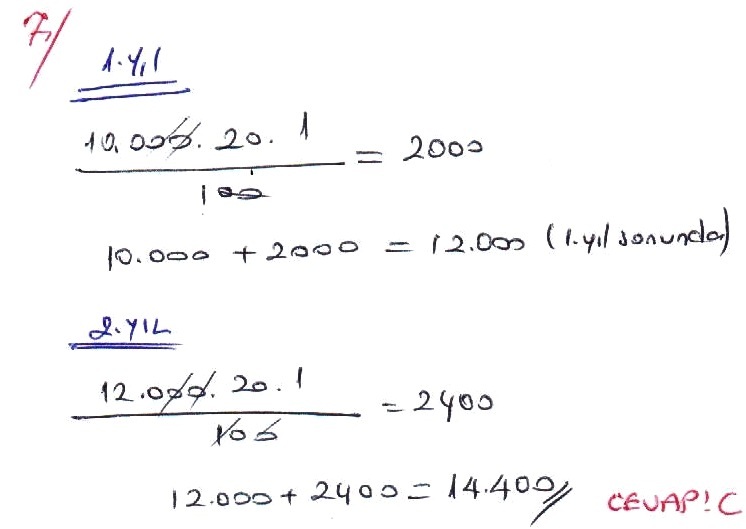 7/
1.Yıl
10.000. 20. 1
100
= 2000
10.000 + 2000 = 12.000 (1.yıl sonunda)
2.YIL
12.000. 20. 1
100
= 2400
12.000 + 2400 = 14.400//
CEVAP: C